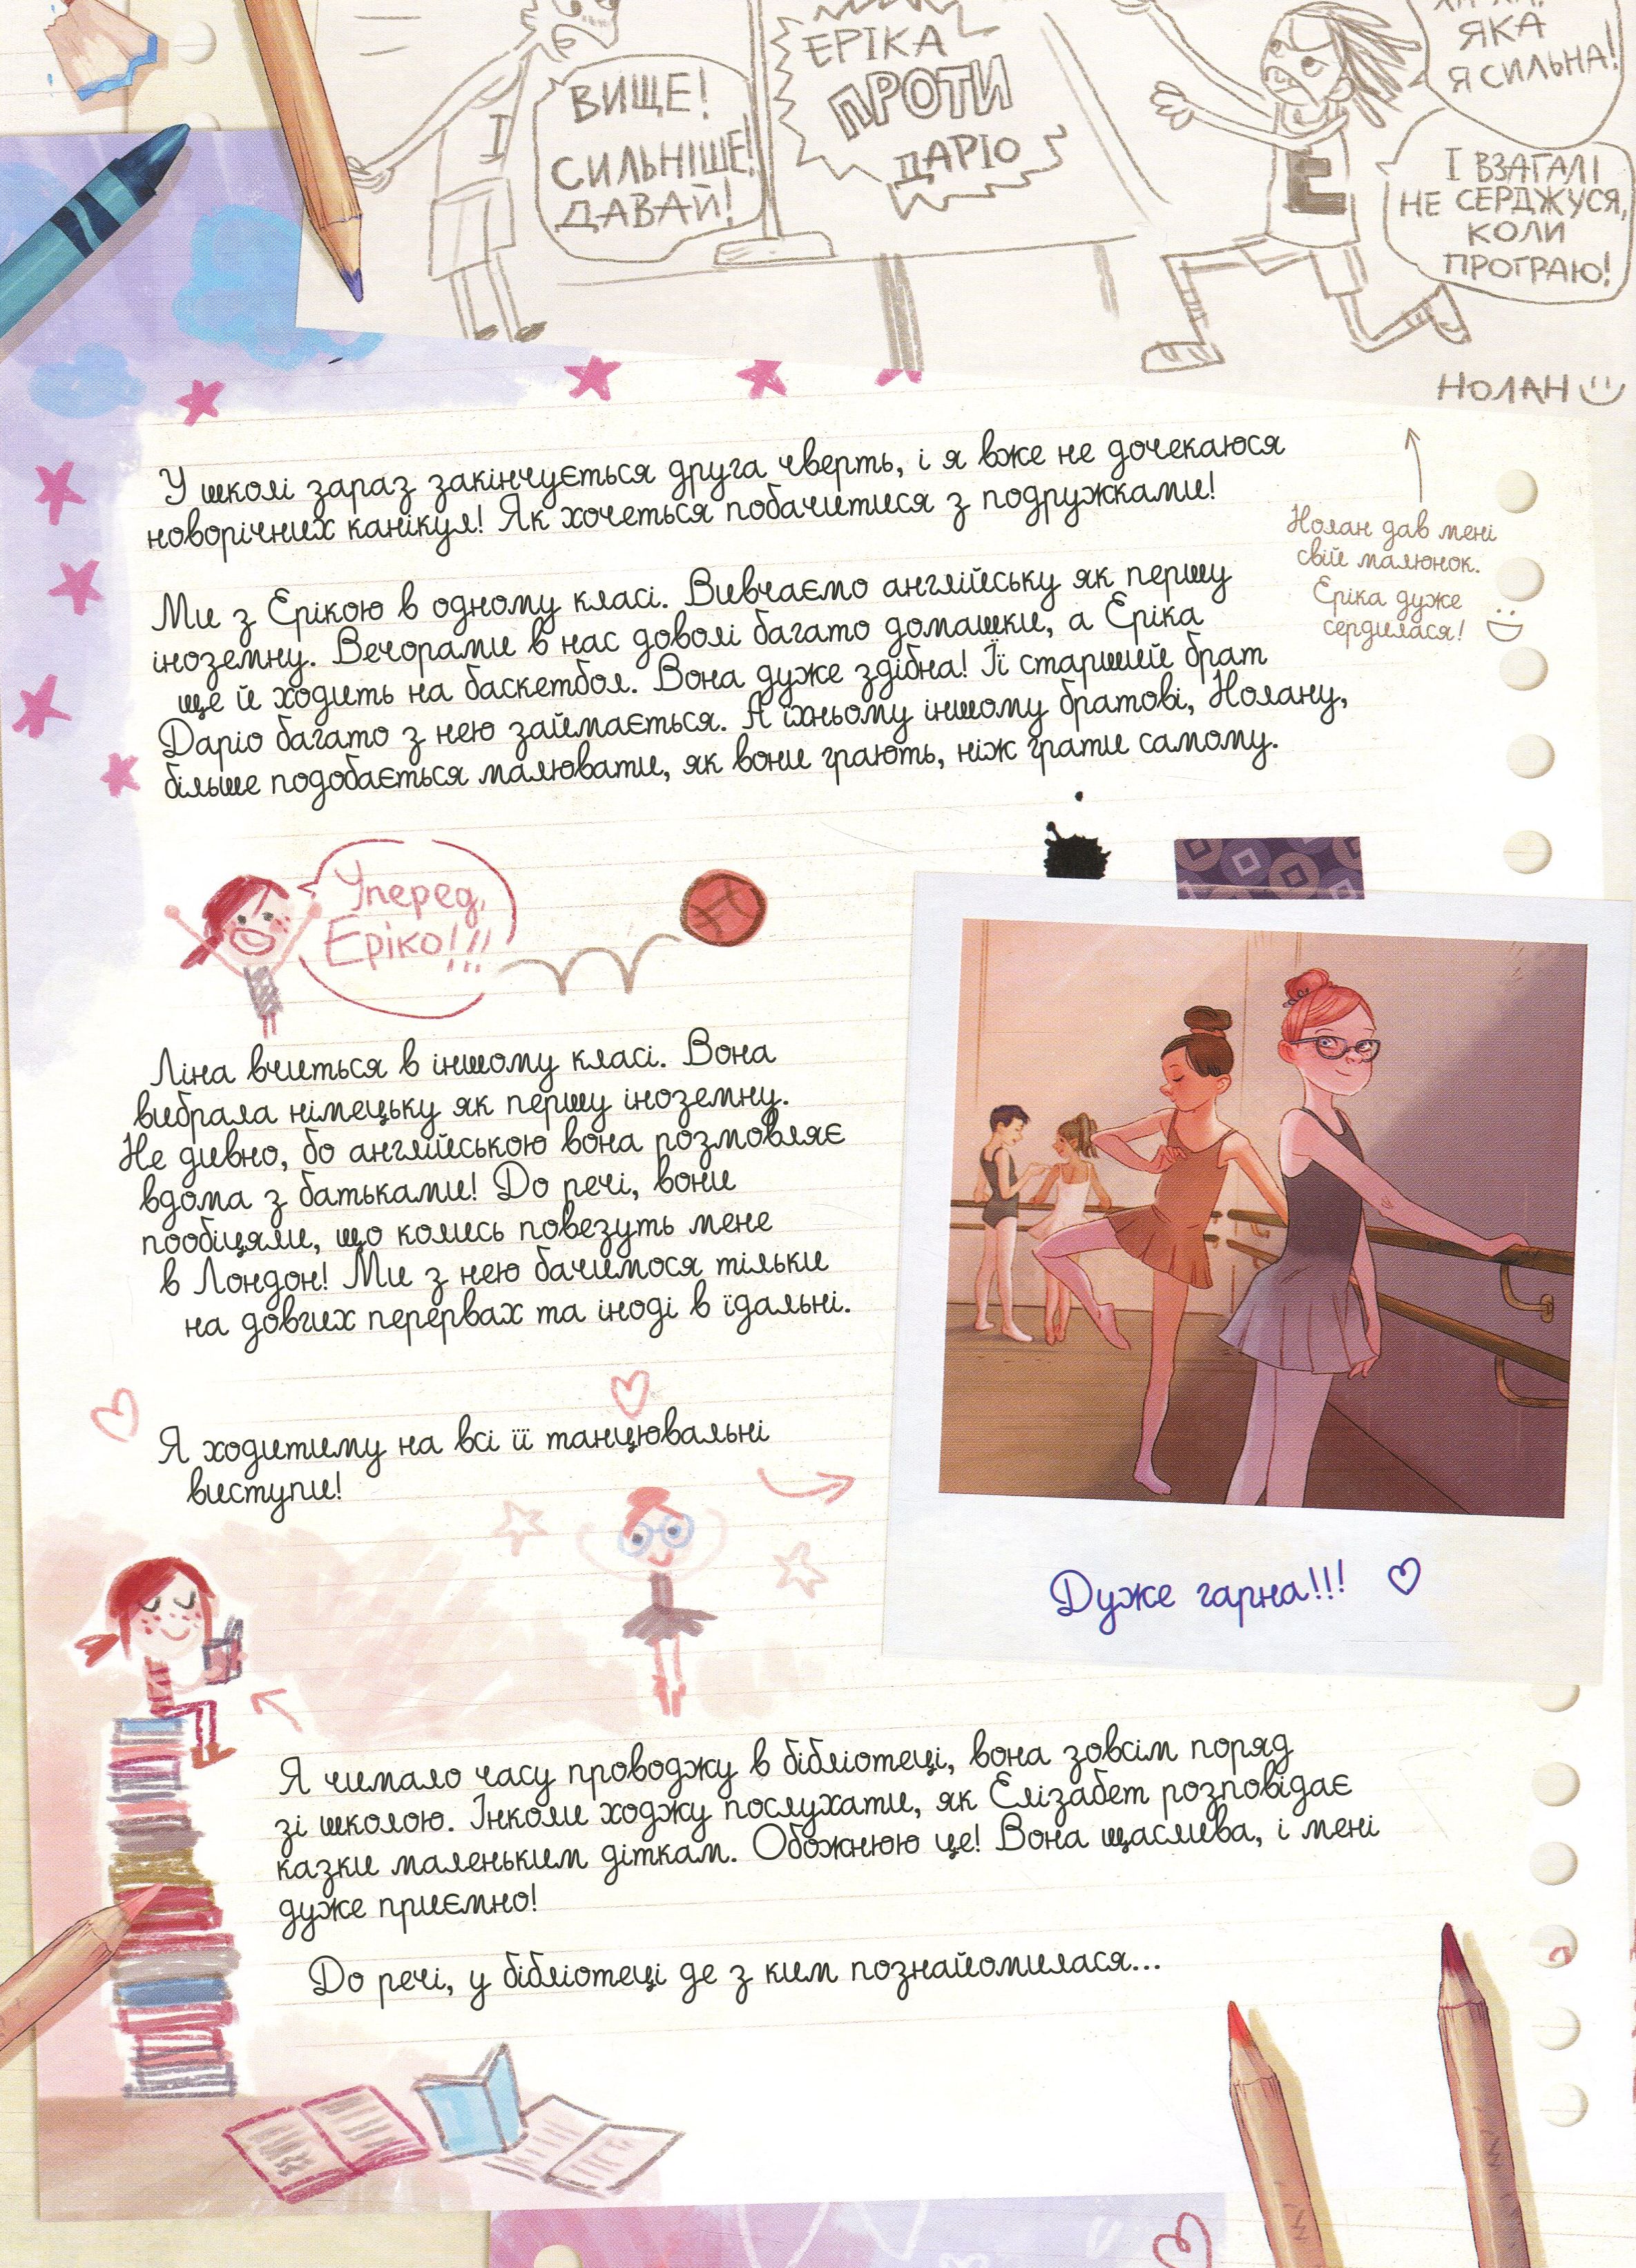 ВИЩЕ!
СИЛЬНІШЕ!
ДАВАЙ!
ЕРІКА
ПРОТИ
ДАРІО
ХА-ХА,
ЯКА
Я СИЛЬНА!
І ВЗАГАЛІ
НЕ СЕРДЖУСЯ,
КОЛИ
ПРОГРАЮ!
Е
НОЛАН
Нолан дав мені
свій малюнок.
Еріка дуже
сердилася!
У школі зараз закінчується друга чверть, і я вже не дочекаюся
новорічних канікул! Як хочеться побачитися з подружками!
Ми з Ерікою в одному класі. Вивчаємо англійську як першу
іноземну. Вечорами в нас доволі багато домашки, а Еріка
ще й ходить на баскетбол. Вона дуже здібна! Її старший брат
Даріо багато з нею займається. А їхньому іншому братові, Нолану,
більше подобається малювати, як вони грають, ніж грати самому.
Уперед,
Еріко!!!
Ліна вчиться в іншому класі. Вона
вибрала німецьку як першу іноземну.
Не дивно, бо англійською вона розмовляє
вдома з батьками! До речі, вони
пообіцяли, що колись повезуть мене
в Лондон! Ми з нею бачимося тільки
на довгих перервах та іноді в їдальні.
Я ходитиму на всі її танцювальні
виступи!
Дуже гарна!!!
Я чимало часу проводжу в бібліотеці, вона зовсім поряд
зі школою. Інколи ходжу послухати, як Елізабет розповідає
казки маленьким діткам. Обожнюю це! Вона щаслива, і мені
дуже приємно!
До речі, у бібліотеці де з ким познайомилася...